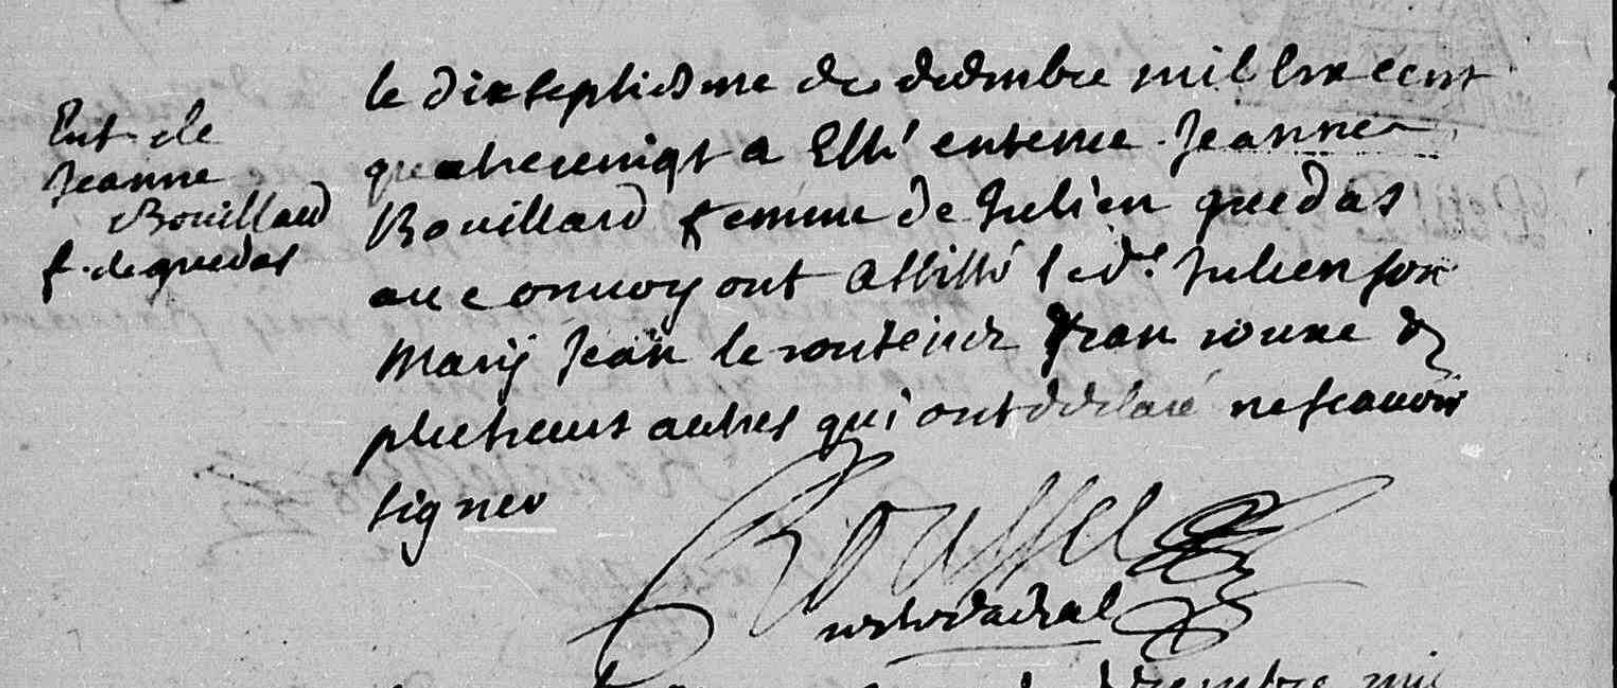 Ent. de
Jeanne
Bouillard
f. de quedas
le dixseptiesme de decembre mil six cent
quatrevingt a esté enterree Jeanne
Bouillard femme de Julien quedas
au convoy ont assisté led. Julien son
mary Jean le Jean et
plusieurs autres qui ont declaré ne scavoir
signer
Roussel